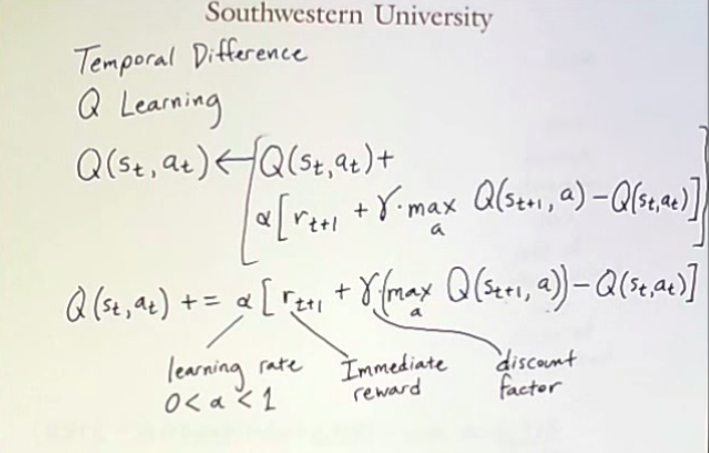 Southwestern University
Temporal Difference
Q Learning
Q(s_t, a_t) ← [Q(s_t, a_t) +
α[r_{t+1} + γ · max_a Q(s_{t+1}, a) − Q(s_t, a_t)]]
Q(s_t, a_t) += α[r_{t+1} + γ(max_a Q(s_{t+1}, a)) − Q(s_t, a_t)]
learning rate Immediate discount
0 < α < 1 reward factor